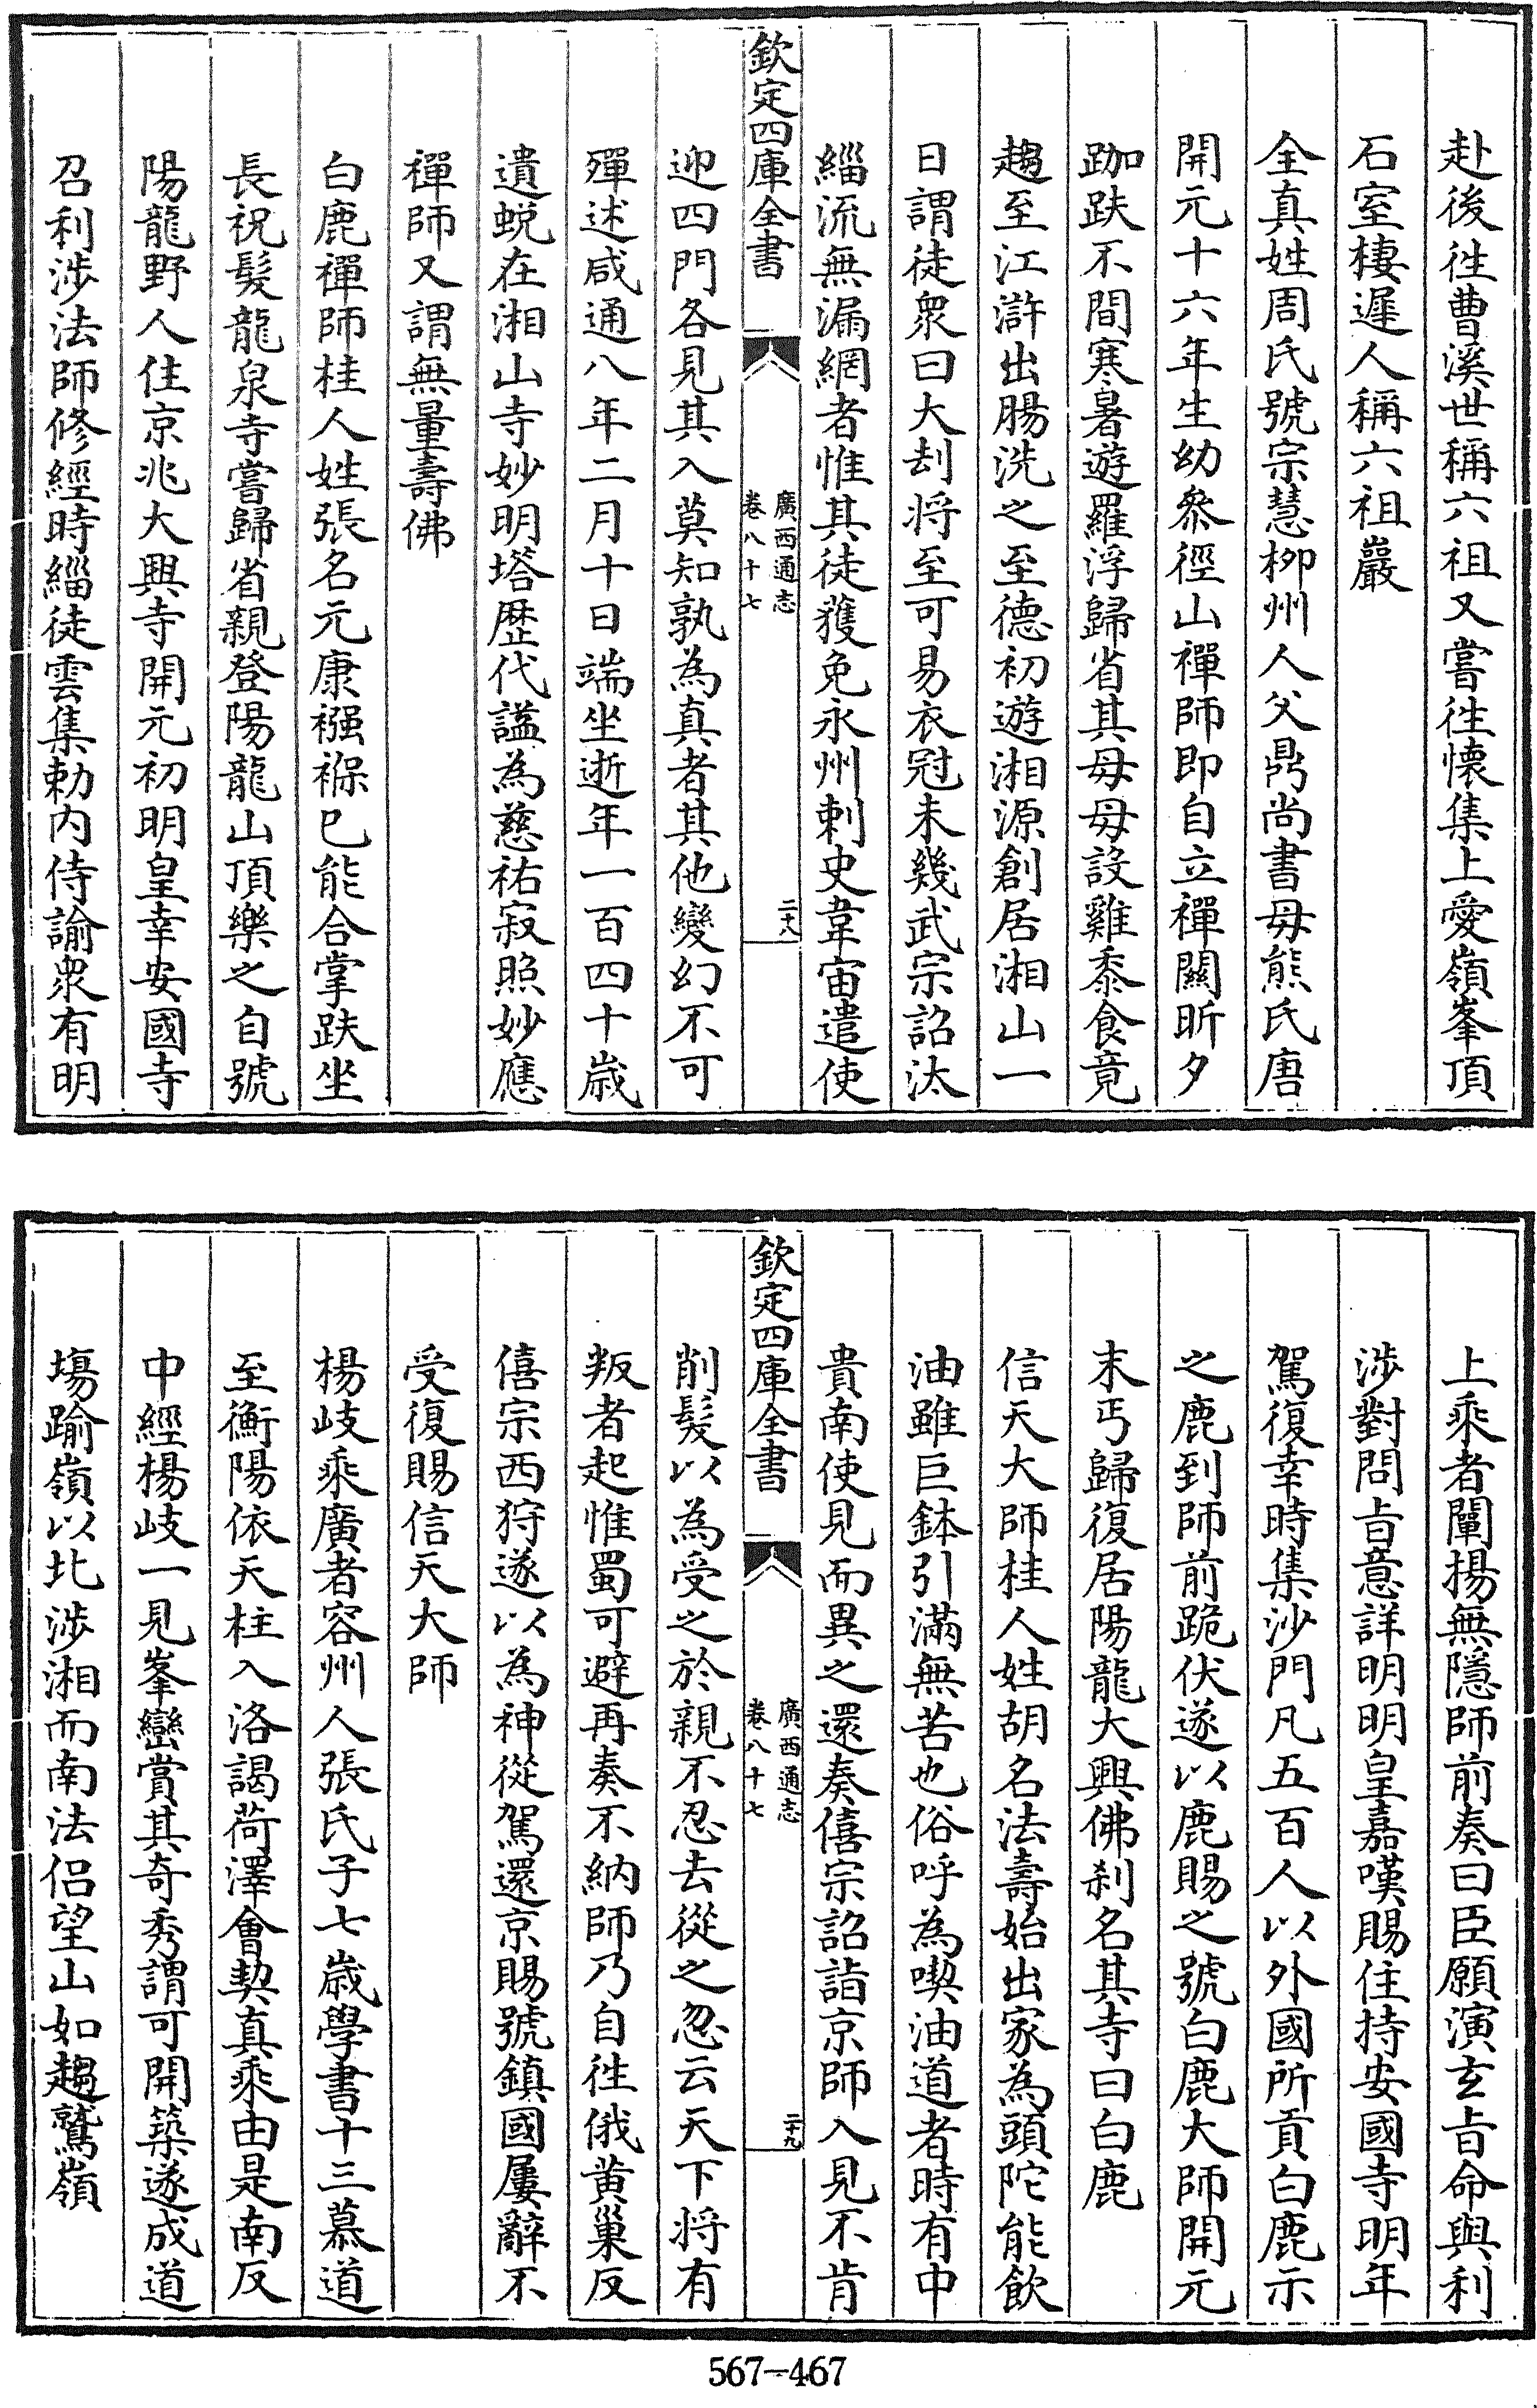 赴後徃曹溪世稱六祖又嘗徃懷集上愛嶺峯頂
石室棲遲人稱六祖巖
全真姓周氏號宗慧栁州人父鼎尚書母熊氏唐
開元十六年生幼叅徑山禪師即自立禪關昕夕
跏趺不間寒暑遊羅浮歸省其母母設雞黍食竟
趨至江滸出腸洗之至德初遊湘源創居湘山一
日謂徒衆曰大刦将至可易衣冠未幾武宗詔汰
緇流無漏網者惟其徒獲免永州刺史韋宙遣使
欽定四庫全書
廣西通志
卷八十七
二十八
迎四門各見其入莫知孰為真者其他變幻不可
殫述咸通八年二月十日端坐逝年一百四十歲
遺蛻在湘山寺妙明塔歴代謚為慈祐寂照妙應
禪師又謂無量壽佛
白鹿禪師桂人姓張名元康襁褓巳能合掌趺坐
長祝髮龍泉寺嘗歸省親登陽龍山頂樂之自號
陽龍野人住京兆大興寺開元初明皇幸安國寺
召利涉法師修經時緇徒雲集勅内侍諭衆有明
上乘者闡揚無隱師前奏曰臣願演玄㫖命與利
涉對問㫖意詳明明皇嘉嘆賜住持安國寺明年
駕復幸時集沙門凡五百人以外國所貢白鹿示
之鹿到師前跪伏遂以鹿賜之號白鹿大師開元
末丐歸復居陽龍大興佛刹名其寺曰白鹿
信天大師桂人姓胡名法壽始出家為頭陀能飲
油雖巨鉢引滿無苦也俗呼為喫油道者時有中
貴南使見而異之還奏僖宗詔詣京師入見不肯
欽定四庫全書
廣西通志
卷八十七
二十九
削髮以為受之於親不忍去從之忽云天下将有
叛者起惟蜀可避再奏不納師乃自徃俄黄巢反
僖宗西狩遂以為神從駕還京賜號鎮國屢辭不
受復賜信天大師
楊岐乘廣者容州人張氏子七歲學書十三慕道
至衡陽依天柱入洛謁荷澤會契真乘由是南反
中經楊岐一見峯巒賞其奇秀謂可開築遂成道
塲踰嶺以北涉湘而南法侣望山如趨鷲嶺
567-467